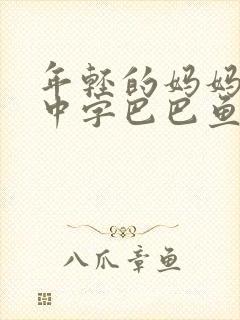 年轻的妈妈
中字巴巴鱼
八爪章鱼